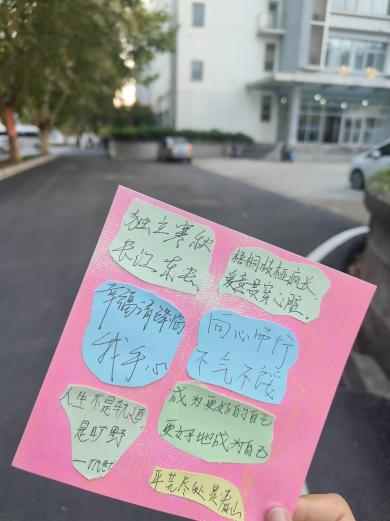 独立寒秋
长江东去
梧桐枝桠疯长
爱意贯穿心脏
幸福请降临
我手心
向心而行
不亢不馁
人生不是轨道
是旷野
成为更好的自己
更好地成为自己
平芜尽处是春山